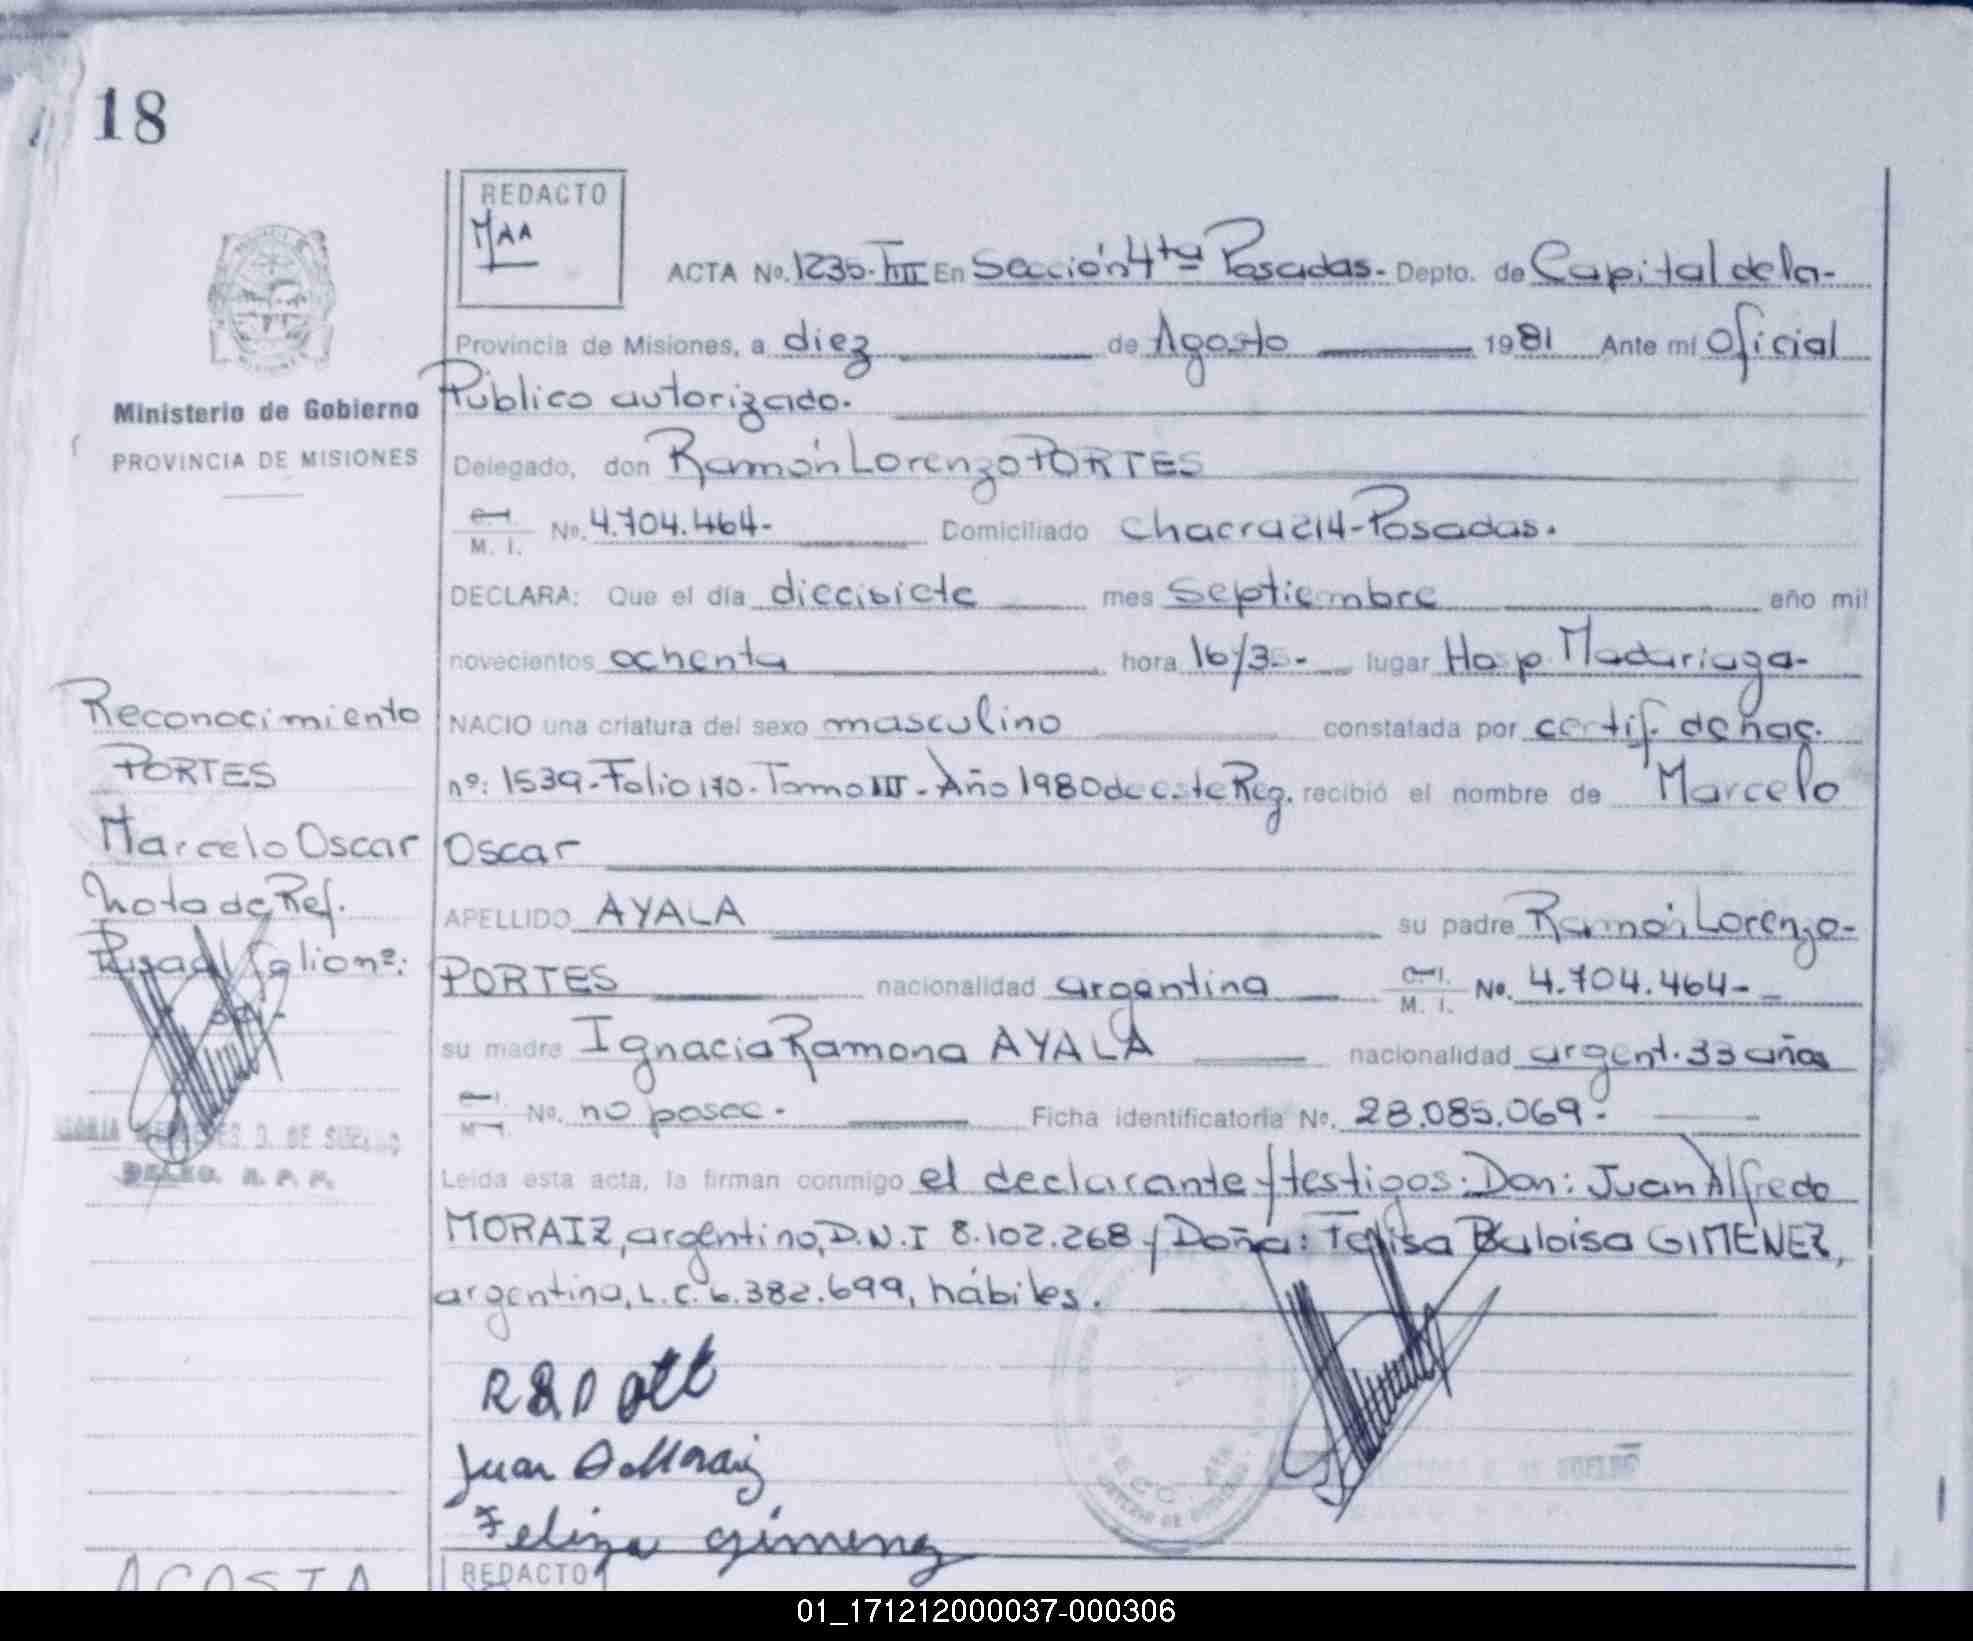 18
REDACTO
MAA
ACTA No. 1235-TIII En Sección 4ta Posadas.- Depto. de Capital de la-
Provincia de Misiones, a diez de Agosto 1981 Ante mí Oficial
Público autorizado.
Ministerio de Gobierno
PROVINCIA DE MISIONES
Delegado, don Ramón Lorenzo PORTES
C. I. M. I. No. 4.704.464- Domiciliado Chacra 214-Posadas.
DECLARA: Que el día diecisiete mes Septiembre año mil
novecientos ochenta hora 16/35- lugar Hosp. Madariaga-
NACIO una criatura del sexo masculino constatada por certif. de nac.
nº: 1539-Folio 170-Tomo III-Año 1980 de este Reg. recibió el nombre de Marcelo
Oscar
APELLIDO AYALA su padre Ramón Lorenzo-
PORTES nacionalidad argentina C. I. M. I. No. 4.704.464-
su madre Ignacia Ramona AYALA nacionalidad argent. 33 años
No. no posee. Ficha identificatoria No. 28.085.069.
Leída esta acta, la firman conmigo el declarante y testigos: Don: Juan Alfredo
MORAIZ, argentino, D.N.I 8.102.268 y Doña: Felisa Baloisa GIMENEZ,
argentina, L.C. 6.382.699, hábiles.
Juan A Moraiz
Feliza gimenez
Reconocimiento
PORTES
Marcelo Oscar
Nota de Ref.
Folio nº:
DE SUELDO
DELEG. R. P. P.
ACOSTA
REDACTO
01_171212000037-000306